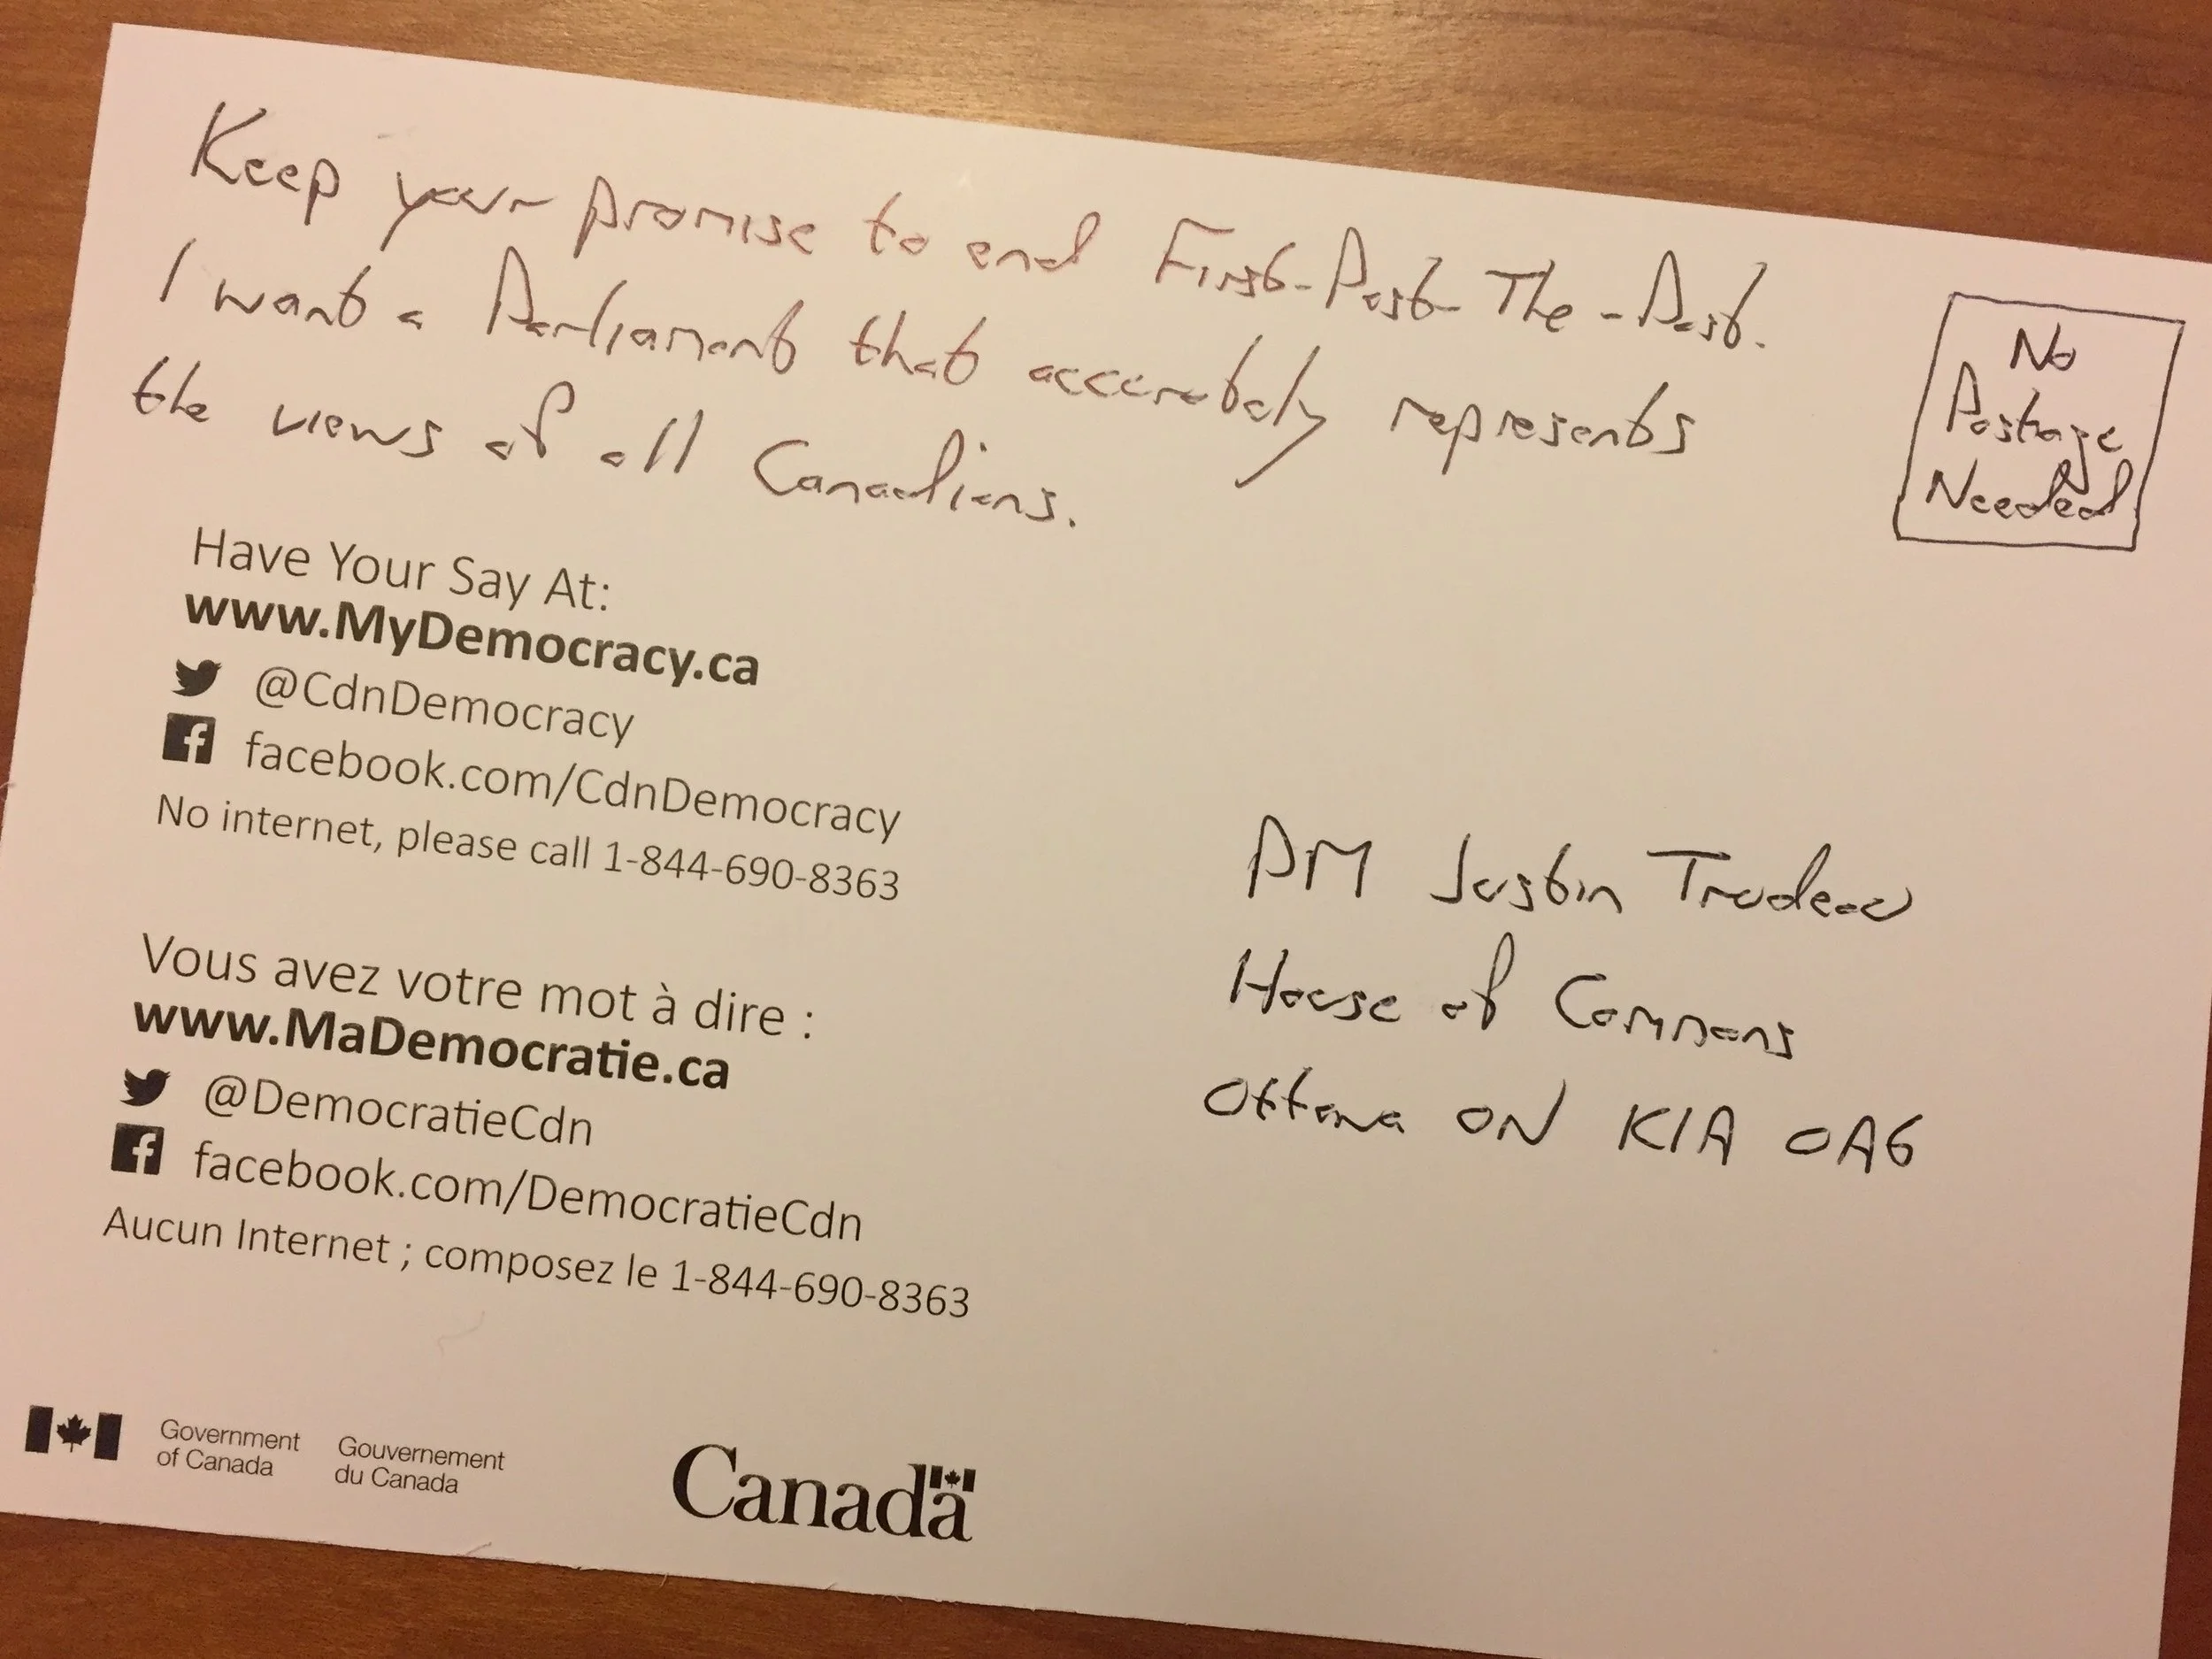 Keep your promise to end First-Past-The-Post.
I want a Parliament that accurately represents
the views of all Canadians.
No
Postage
Needed
Have Your Say At:
www.MyDemocracy.ca
@CdnDemocracy
facebook.com/CdnDemocracy
No internet, please call 1-844-690-8363
PM Justin Trudeau
House of Commons
Ottawa ON K1A 0A6
Vous avez votre mot à dire :
www.MaDemocratie.ca
@DemocratieCdn
facebook.com/DemocratieCdn
Aucun Internet ; composez le 1-844-690-8363
Government
of Canada
Gouvernement
du Canada
Canada